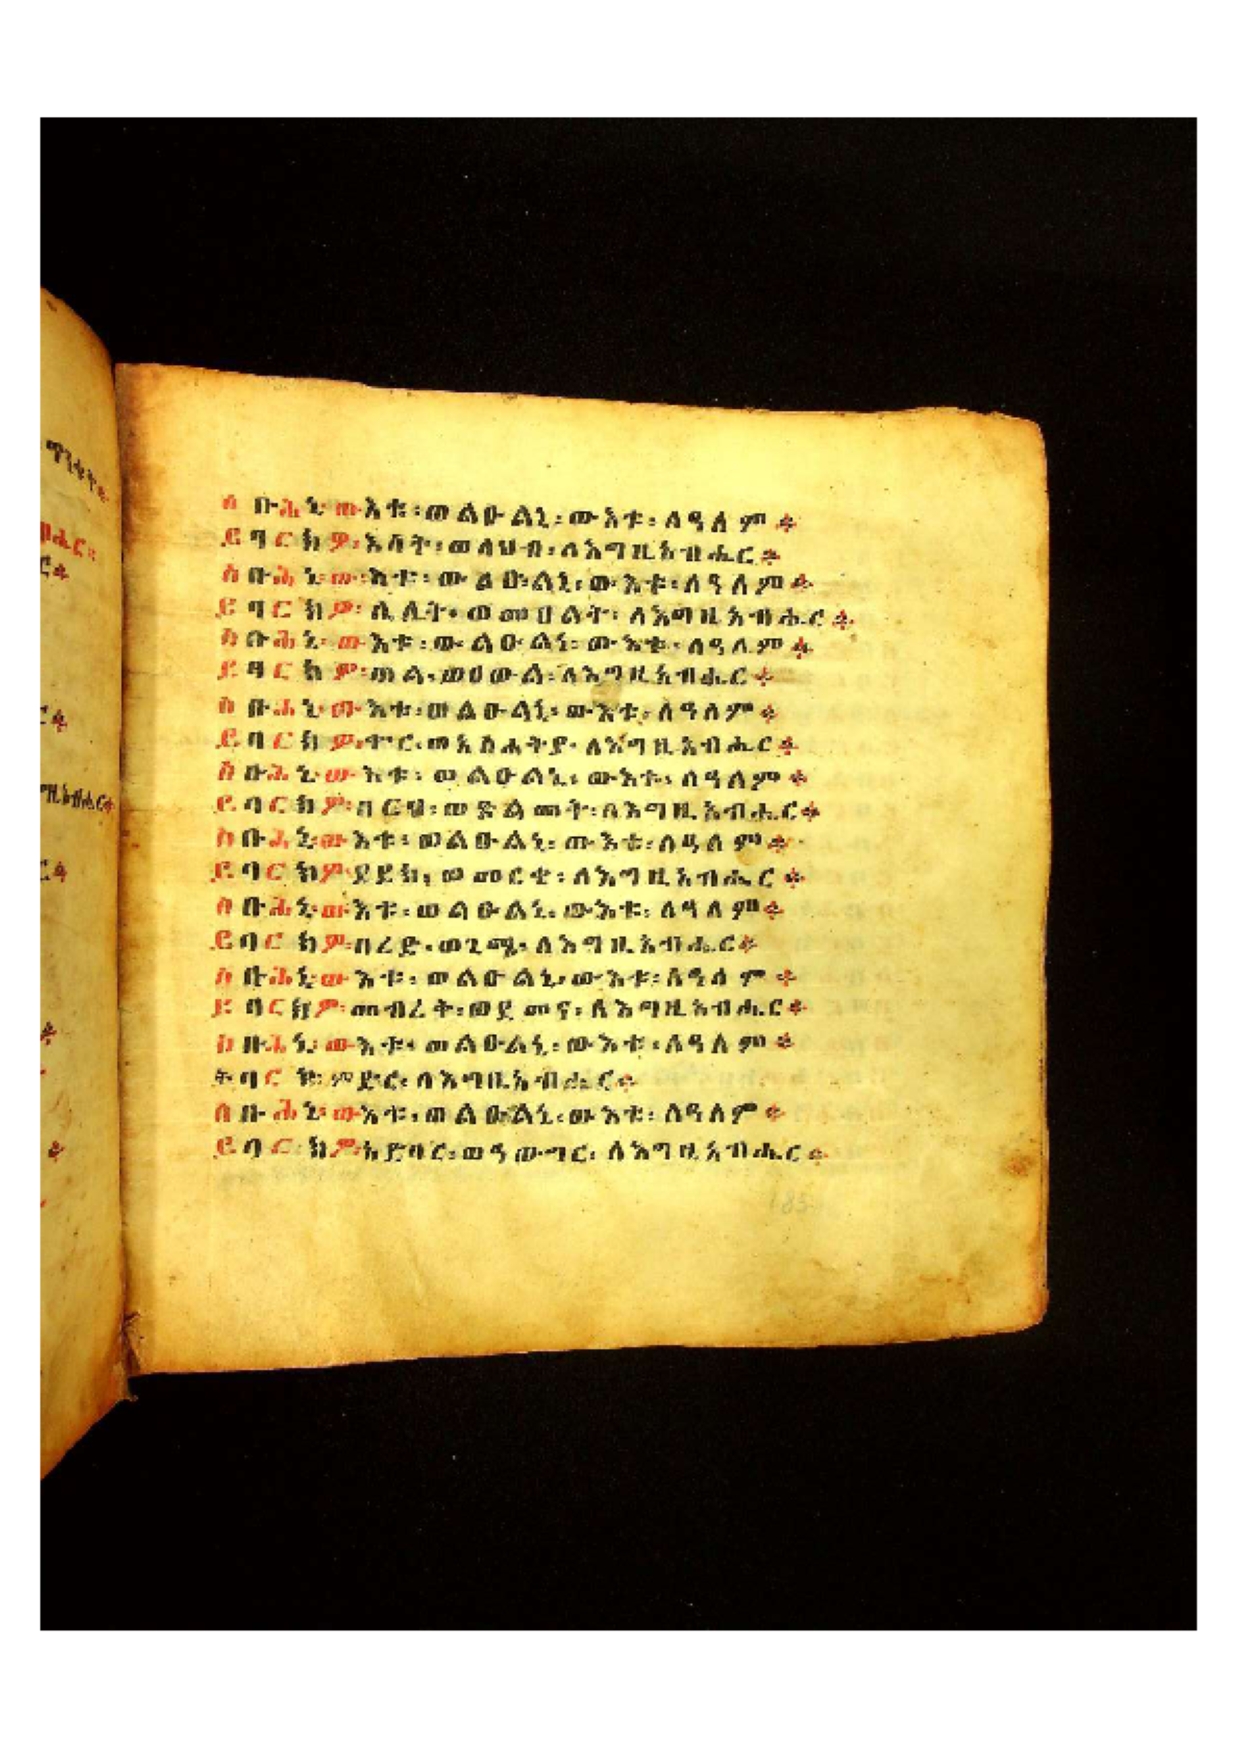 ስቡሕኒ፡ውእቱ፡ወልዑልኒ፡ውእቱ፡ለዓለም፨
ይባርክዎ፡እሳት፡ወላህብ፡ለእግዚአብሔር፨
ስቡሕኒ፡ውእቱ፡ወልዑልኒ፡ውእቱ፡ለዓለም፨
ይባርክዎ፡ሌሊት፡ወመዐልት፡ለእግዚአብሔር፨
ስቡሕኒ፡ውእቱ፡ወልዑልኒ፡ውእቱ፡ለዓለም፨
ይባርክዎ፡ጠል፡ወዐውሎ፡ለእግዚአብሔር፨
ስቡሕኒ፡ውእቱ፡ወልዑልኒ፡ውእቱ፡ለዓለም፨
ይባርክዎ፡ቍር፡ወአስሐትያ፡ለእግዚአብሔር፨
ስቡሕኒ፡ውእቱ፡ወልዑልኒ፡ውእቱ፡ለዓለም፨
ይባርክዎ፡በርህ፡ወጽልመት፡ለእግዚአብሔር፨
ስቡሕኒ፡ውእቱ፡ወልዑልኒ፡ውእቱ፡ለዓለም፨
ይባርክዎ፡ደደክ፡ወመርቄ፡ለእግዚአብሔር፨
ስቡሕኒ፡ውእቱ፡ወልዑልኒ፡ውእቱ፡ለዓለም፨
ይባርክዎ፡በረድ፡ወጊሜ፡ለእግዚአብሔር፨
ስቡሕኒ፡ውእቱ፡ወልዑልኒ፡ውእቱ፡ለዓለም፨
ይባርክዎ፡መብረቅ፡ወደመና፡ለእግዚአብሔር፨
ስቡሕኒ፡ውእቱ፡ወልዑልኒ፡ውእቱ፡ለዓለም፨
ትባርኮ፡ምድር፡ለእግዚአብሔር፨
ስቡሕኒ፡ውእቱ፡ወልዑልኒ፡ውእቱ፡ለዓለም፨
ይባርክዎ፡አድባር፡ወዓውግር፡ለእግዚአብሔር፨